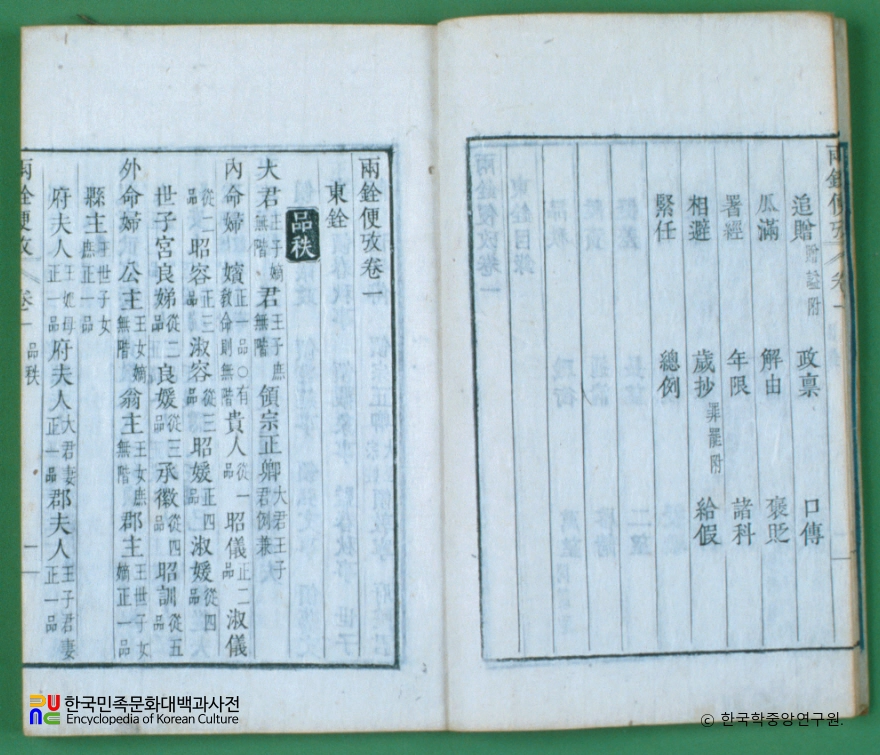 兩銓便攷 卷一
追贈 政稟 口傳
瓜滿 解由 褒貶
署經 年限 諸科
相避 歲抄 罪罷附 給假
緊任 總例
兩銓便攷卷一
東銓
品秩
大君 王子嫡無階 君 王子庶無階 領宗正卿 大君王子君例兼
內命婦 嬪 正一品○有教命則無階 貴人 從一品 昭儀 正二品 淑儀
從二品 昭容 正三品 淑容 從三品 昭媛 正四品 淑媛 從四品
世子宮良娣 從二品 良媛 從三品 承徽 從四品 昭訓 從五品
外命婦 公主 王女嫡無階 翁主 王女庶無階 郡主 王世子女嫡正一品
縣主 王世子女庶正一品
府夫人 王妃母正一品 府夫人 大君妻正一品 郡夫人 王子君妻正一品
兩銓便攷 卷一 品秩 一
한국민족문화대백과사전
Encyclopedia of Korean Culture
© 한국학중앙연구원.